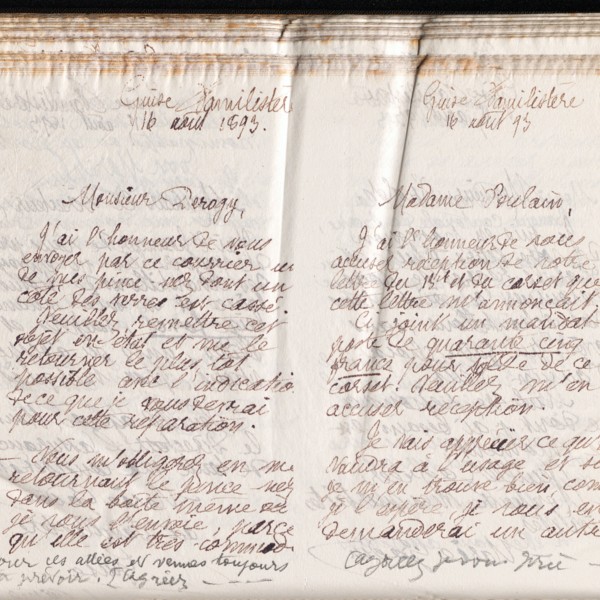 Guise Familistère
16 août 1893.
Monsieur Deragy,
J'ai l'honneur de vous
envoyer par ce courrier un
de mes pince-nez dont un
côté des verres est cassé.
Veuillez remettre cet
objet en état et me le
retourner le plus tôt
possible avec l'indicatio
de ce que je vous devrai
pour cette réparation.
Vous m'obligerez en me
retournant le pince-nez
dans la boîte même où
je vous l'envoie, parce
qu'elle est très commod
pour les allées et venues toujours
à prévoir. Agréez
Guise Familistère
16 août 93
Madame Poulain,
J'ai l'honneur de vous
accuser réception de votre
lettre du et du corset que
cette lettre m'annonçait
Ci-joint un mandat
poste de quarante cinq
francs pour de ce
corset. Veuillez m'en
accuser réception.
Je vais apprécier ce qu'il
vaudra à l'usage et si
je m'en trouve bien, com
je l'espère, je vous en
demanderai un autre
Agréez